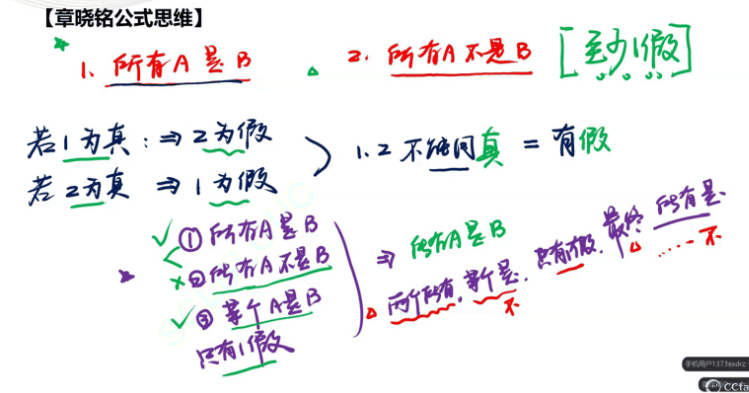 【章晓铭公式思维】
1. 所有A是B 2. 所有A不是B [至少1假]
若1为真:⇒2为假
若2为真 ⇒1为假
1.2不能同真=有假
①所有A是B
②所有A不是B
③某个A是B
只有1假
⇒ 所有A是B
两个所有,某个是,只有1假,最终 所有是
不 ……不
手机用户1373exdrz
CCta